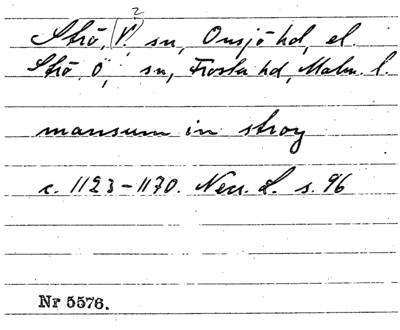 Strö, (V.?) sn, Onsjö hd, el.
Strö Ö, sn, Frosta hd, Malm. l.
mansum in stroy
c. 1123-1170. Necr. L. s. 96
Nr 5576.